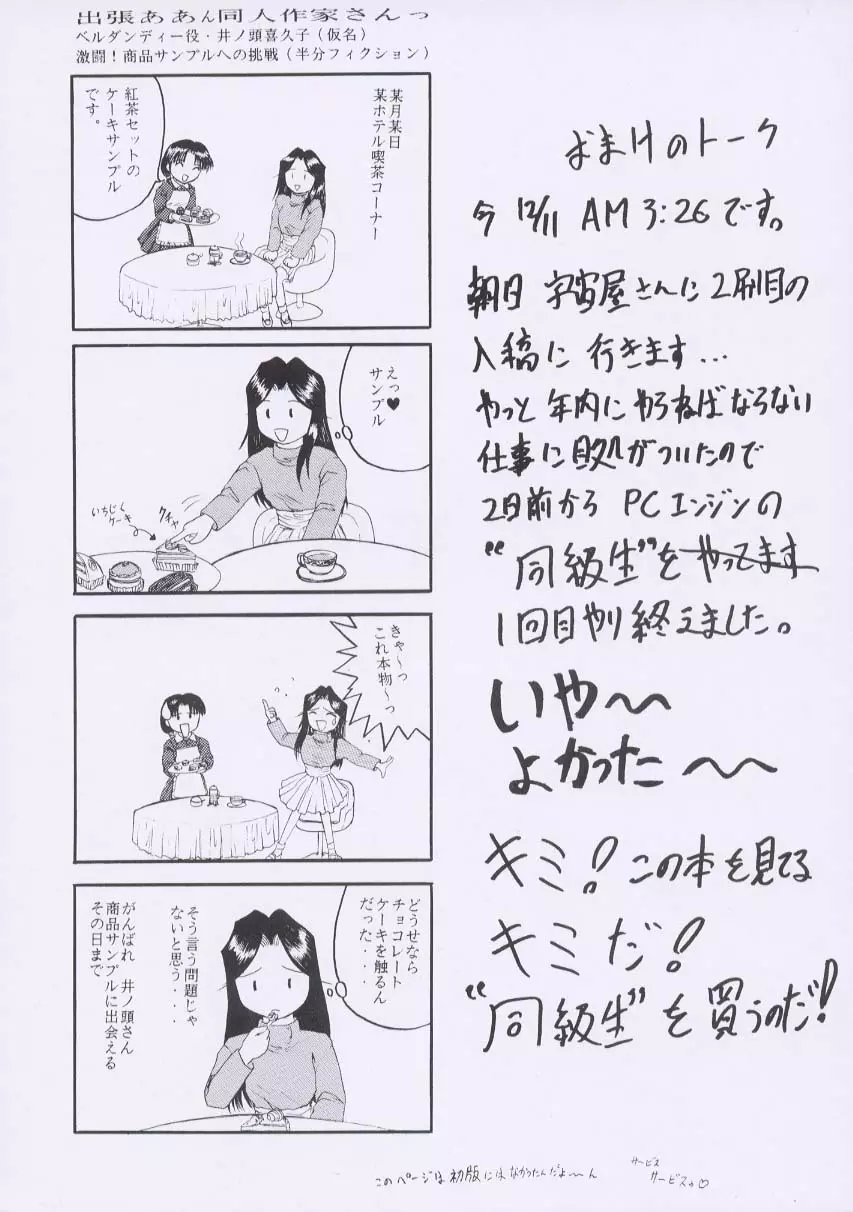 出張ああん同人作家さんっ
ベルダンディー役・井ノ頭喜久子（仮名）
激闘！商品サンプルへの挑戦（半分フィクション）
某月某日
某ホテル喫茶コーナー
紅茶セットの
ケーキサンプル
です。
えっ♥
サンプル
クチャ
いちじく
ケーキ
きゃ〜っ
これ本物〜っ
どうせなら
チョコレート
ケーキを触るん
だった・・
そう言う問題じゃ
ないと思う・・・
がんばれ　井ノ頭さん
商品サンプルに出会える
その日まで
おまけのトーク
今 12/11 AM 3:26です。
朝日 宇宙屋さんに2刷目の
入稿に 行きます…
やっと 年内にやらねばならない
仕事に目処がついたので
2日前から PCエンジンの
“同級生”をやってます
1回目やり終えました。
いや〜〜
よかった〜〜
キミ！この本を見てる
キミだ！
“同級生”を買うのだ！
このページは初版にはなかったんだよ〜ん
サービス
サービスゥ♡